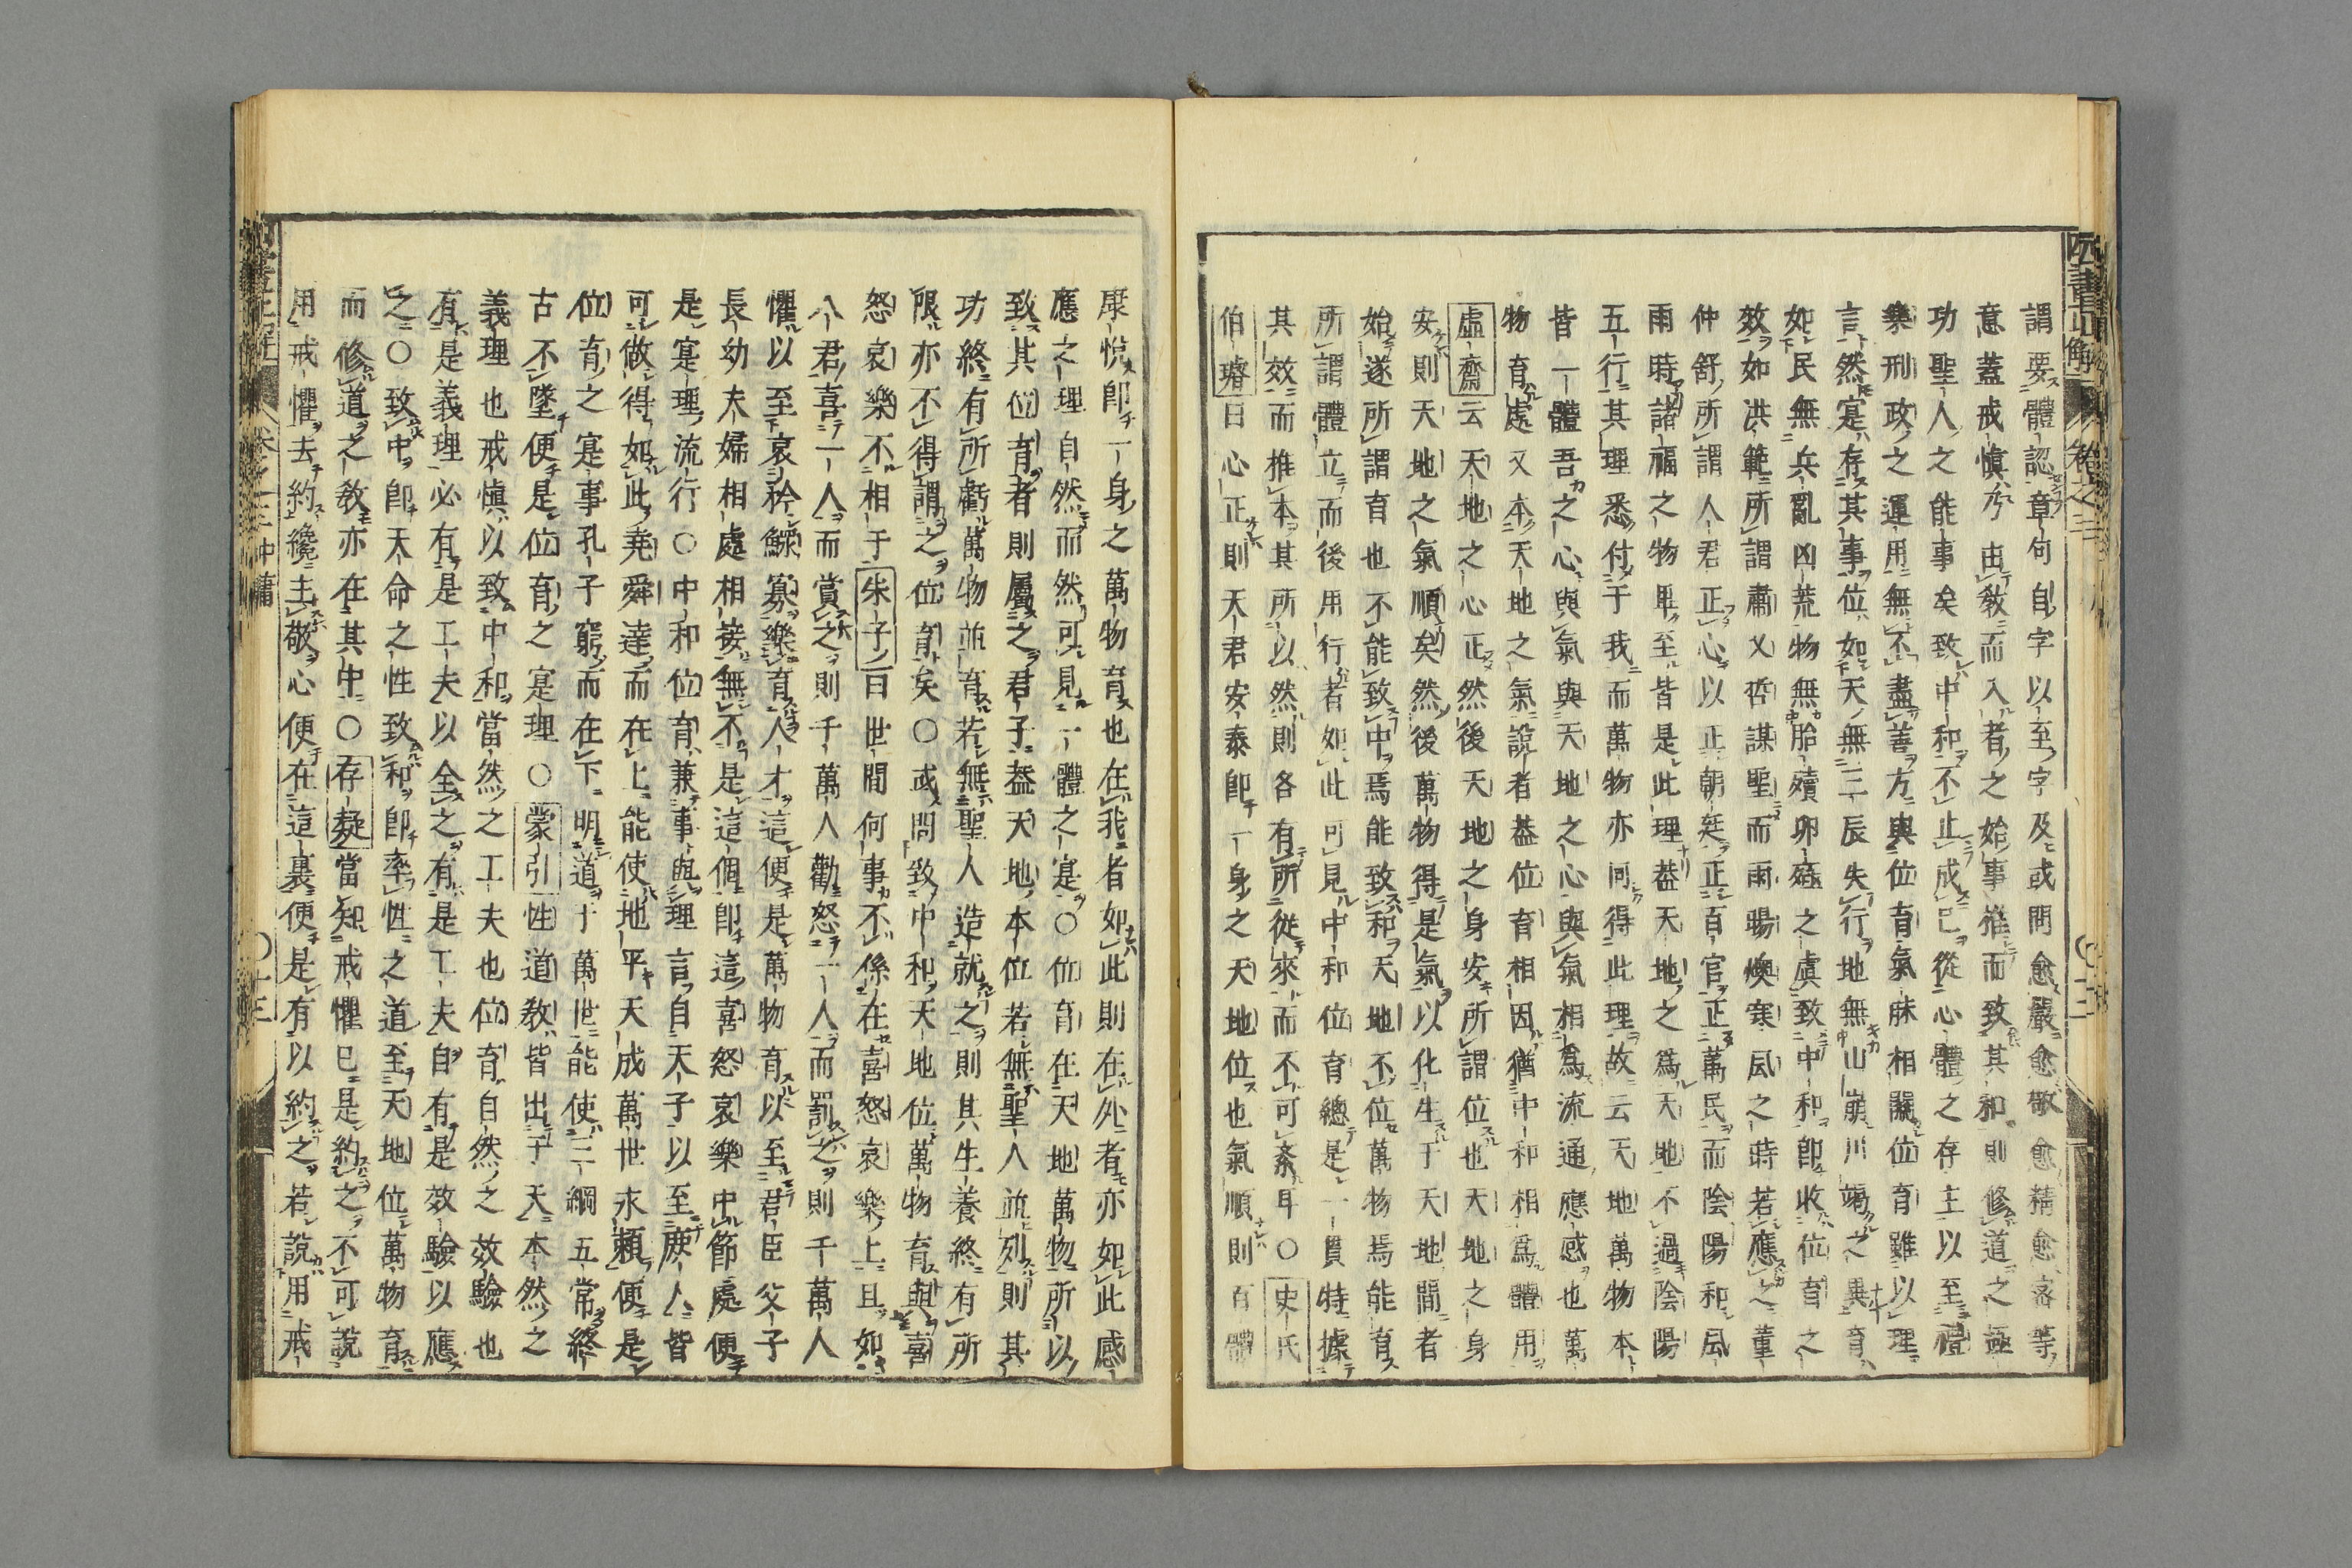 謂要體認章句自字以至字及或問愈嚴愈敬愈精愈密等
意蓋戒愼乃由敎而入者之始事推而致其和則修道之極
功聖人之能事矣致中和不止成已從心體之存主以至禮
樂刑政之運用無不盡善方與位育氣脉相關位育雖以理
言然寔存其事位如天無三辰失行地無山崩川竭之異育
如民無兵亂凶荒物無胎殰卵殈之虞致中和卽收位育之
效如洪範所謂肅乂哲謀聖而雨暘燠寒風之時若應之董
仲舒所謂人君正心以正朝矣正百官正萬民而陰陽和風
雨時諸福之物畢至皆是此理蓋天地之爲天地不過陰陽
五行其理悉付于我而萬物亦同得此理故云天地萬物本
皆一體吾之心與氣與天地之心與氣相爲流通應感也萬
物育處又本天地之氣說者蓋位育相因猶中和相爲體用
虛齋云天地之心正然後天地之身安所謂位也天地之身
安則天地之氣順矣然後萬物得是氣以化生于天地間者
始遂所謂育也不能致中焉能致和天地不位萬物焉能育
所謂體立而後用行者如此可見中和位育總是一貫特據
其效而推本其所以然則各有所從來而不可紊耳○史氏
伯璿曰心正則天君安泰卽一身之天地位也氣順則百體
康悅卽一身之萬物育也在我者如此則在外者亦如此感
應之理自然而然可見一體之寔○位育在天地萬物所以
致其位育者則屬之君子蓋天地本位若無聖人並列則其
功終有所虧萬物並育若無聖人造就之則其生養終有所
限亦不得謂之位育矣○或問致中和天地位萬物育與喜
怒哀樂不相于朱子曰世間何事不係在喜怒哀樂上且如
人君喜一人而賞之則千萬人勸怒一人而罰之則千萬人
懼以至哀矜鰥寡樂育人才這便是萬物育以至君臣父子
長幼夫婦相處相接無不是這個卽這喜怒哀樂中節處便
是寔理流行○中和位育兼事與理言自天子以至庶人皆
可做得如此堯舜達而在上能使地平天成萬世永賴便是
位育之寔事孔子窮而在下明道于萬世能使三綱五常終
古不墜便是位育之寔理○蒙引性道敎皆出于天本然之
義理也戒愼以致中和當然之工夫也位育自然之效驗也
有是義理必有是工夫以全之有是工夫自有是效驗以應
之○致中卽天命之性致和卽率性之道至天地位萬物育
而修道之敎亦在其中○存疑當知戒懼已是約之不可說
用戒懼去約纔主敬心便在這裏便是有以約之若說用戒
四書正解
卷之三
中庸